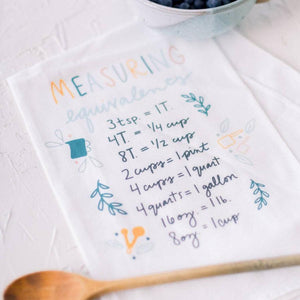 MEASURING
equivalency
3 tsp. = 1 T.
4 T. = 1/4 cup
8 T. = 1/2 cup
2 cups = 1 pint
4 cups = 1 quart
4 quarts = 1 gallon
16 oz = 1 lb.
8 oz = 1 cup